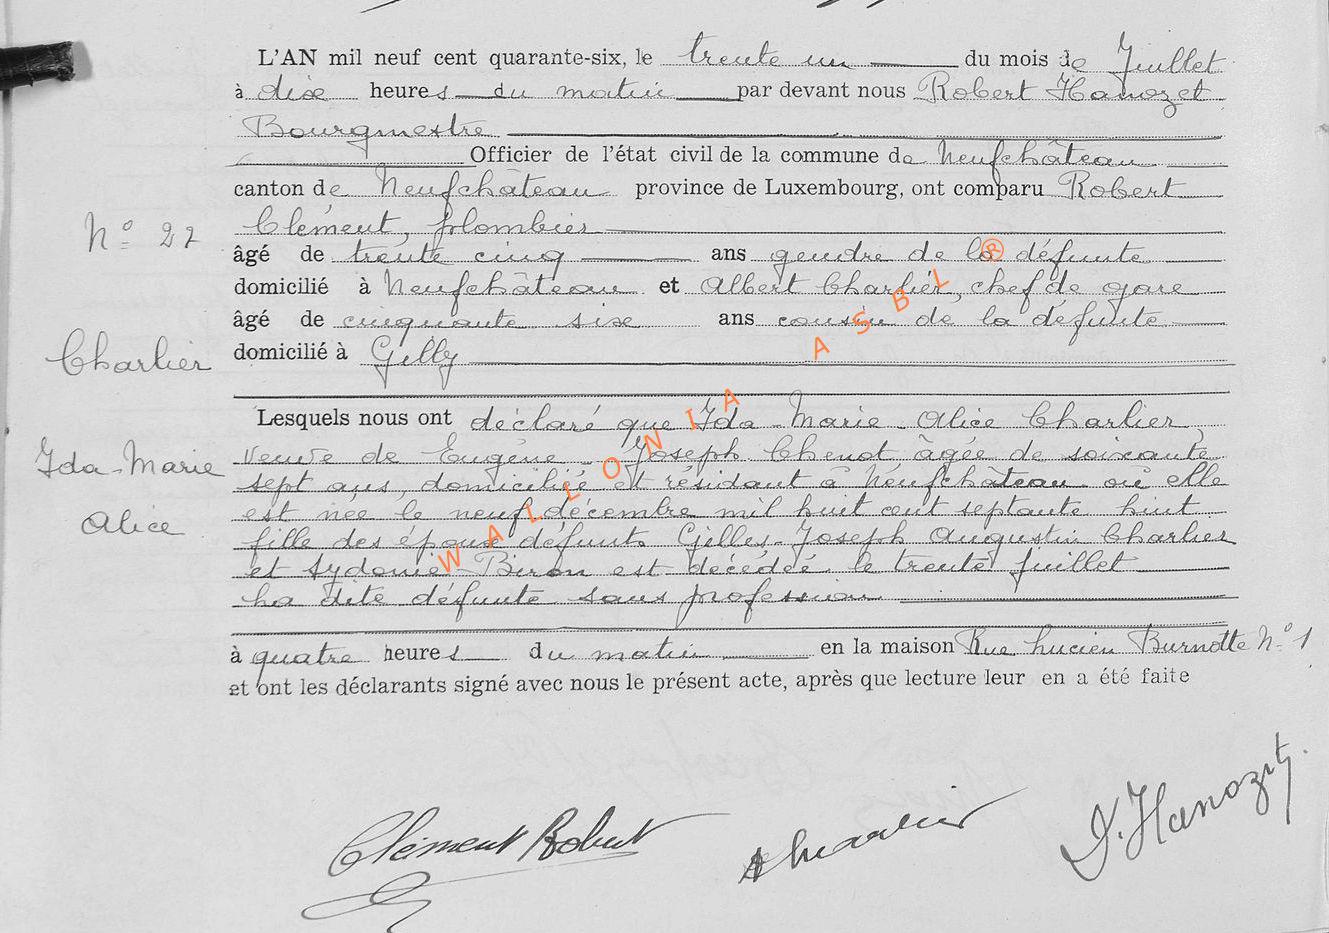 L'AN mil neuf cent quarante-six, le trente un du mois de Juillet
à dix heures du matin par devant nous Robert Hanozet
Bourgmestre
Officier de l'état civil de la commune de Neufchâteau
canton de Neufchâteau province de Luxembourg, ont comparu Robert
N° 27
Clément, plombier
âgé de trente cinq ans gendre de la défunte
domicilié à Neufchâteau et Albert Charlier, chef de gare
âgé de cinquante six ans cousin de la défunte
Charlier
domicilié à Gilly
Lesquels nous ont déclaré que Ida Marie Alice Charlier,
Ida-Marie
Alice
veuve de Eugène Joseph Chenot âgée de soixante
sept ans, domiciliée et résidant à Neufchâteau où elle
est née le neuf décembre mil huit cent septante huit
fille des époux défunts Gilles-Joseph Augustin Charlier
et Sydonie Biron est décédée le trente juillet
La dite défunte sans profession
à quatre heures du matin en la maison Rue Lucien Burnotte N° 1
et ont les déclarants signé avec nous le présent acte, après que lecture leur en a été faite
Clément Robert
A Charlier
Hanozet
WALLONIA ASBL ®